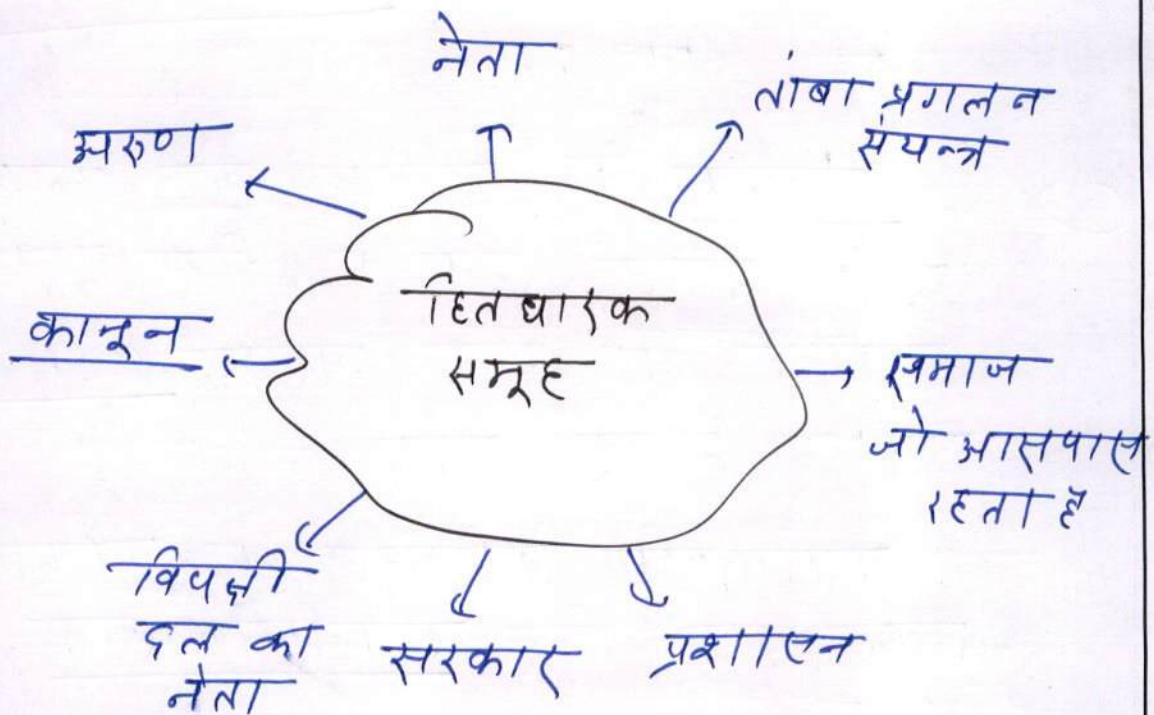 नेता
तांबा प्रगलन
संयन्त्र
अरुण
हितधारक
समूह
कानून
समाज
जो आसपास
रहता है
विपक्षी
दल का
नेता
सरकार
प्रशासन